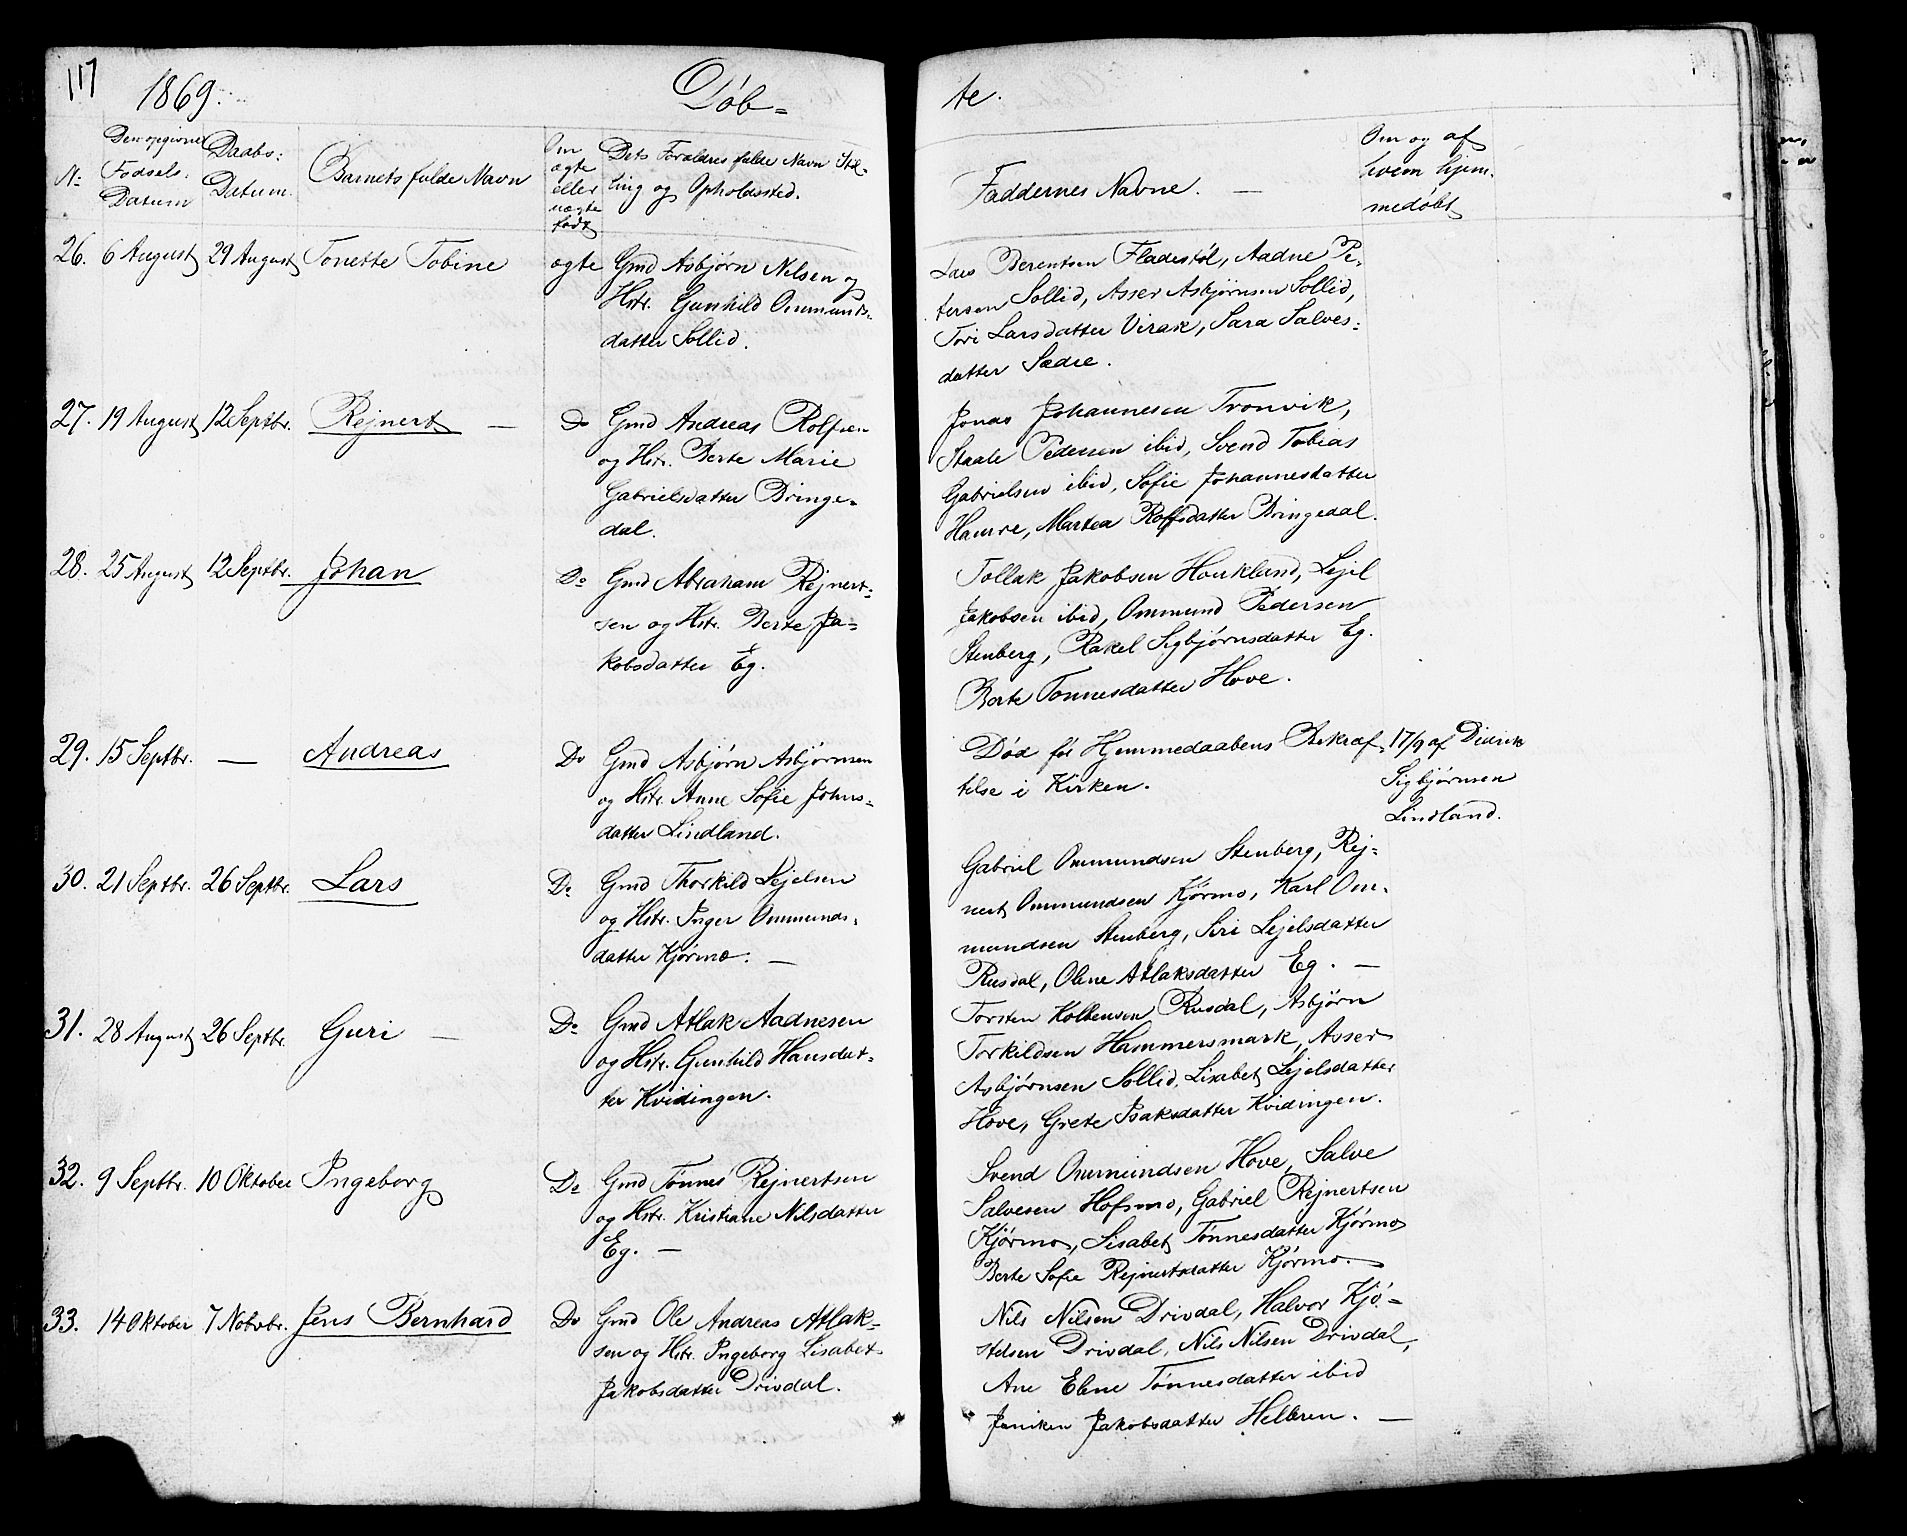 117
1869.
Døb-
te.
No
Den opgivne
Fødsels-
Datum
Daabs-
Datum
Barnets fulde Navn
Om
ægte
eller
uægte
født
Dets Forældres fulde Navn Stil-
ling og Opholdssted.
Faddernes Navne. —
Om og af
hvem hjem-
medøbt
26. 6 August 29 August Tonette Tobine ægte
Gmd Asbjørn Nilsen og
Hstr. Gunhild Ommunds-
datter Sollid.
Lars Berentsen Fladestøl, Aadne Pe-
tersen Sollid, Asser Asbjørnsen Sollid,
Tori Larsdatter Virak, Sara Salves-
datter Sædre.
27. 19 August 12 Septbr. Rejnert — Do
Gmd Andreas Rolfsen
og Hstr. Berte Marie
Gabrielsdatter Bringe-
dal.
Jonas Johannesen Tronvik,
Staale Pedersen ibid, Svend Tobias
Gabrielsen ibid, Sofie Johannesdatter
Hamre, Martea Rolfsdatter Bringedal.
28. 25 August 12 Septbr. Johan Do
Gmd Abraham Rejnert-
sen og Hstr. Berte Ja-
kobsdatter Eg.
Tollak Jakobsen Houkland, Lejel
Jakobsen ibid, Ommund Pedersen
Stenberg, Rakel Sigbjørnsdatter Eg.
Berte Tønnesdatter Hove.
29. 15 Septbr. — Andreas Do
Gmd Asbjørn Asbjørnsen
og Hstr. Anne Sofie Johns-
datter Lindland.
Død før Hjemmedaabens Bekræf-
telse i Kirken.
17/9 af Didrik
Sigbjørnsen
Lindland.
30. 21 Septbr. 26 Septbr. Lars Do
Gmd Thorkild Lejelsen
og Hstr. Inger Ommunds-
datter Kjørmo. —
Gabriel Ommundsen Stenberg, Rej-
nert Ommundsen Kjørmo, Karl Om-
mundsen Stenberg, Siri Lejelsdatter
Rusdal, Olene Atlaksdatter Eg. —
31. 28 August 26 Septbr. Guri — Do
Gmd Atlak Aadnesen
og Hstr. Gunhild Hansdat-
ter Kvidingen.
Torsten Kolbensen Rusdal, Asbjørn
Torkildsen Hammersmark, Asser
Asbjørnsen Sollid, Lisabet Lejelsdatter
Hove, Grete Isaksdatter Kvidingen.
32. 9 Septbr. 10 Oktober Ingeborg Do
Gmd Tønnes Rejnertsen
og Hstr. Kristiane Nilsdatter
Eg. —
Svend Ommundsen Hove, Salve
Salvesen Hofsmo, Gabriel Rejnertsen
Kjørmo, Lisabet Tønnesdatter Kjørmo
Berte Sofie Rejnertsdatter Kjørmo. —
33. 14 Oktober 7 Novbr. Jens Bernhard Do
Gmd Ole Andreas Atlak-
sen og Hstr. Ingeborg Lisabet
Jakobsdatter Drivdal.
Nils Nilsen Drivdal, Halvor Kjø-
stelsen Drivdal, Nils Nilsen Drivdal,
Ane Elene Tønnesdatter ibid
Janiken Jakobsdatter Helleren. —